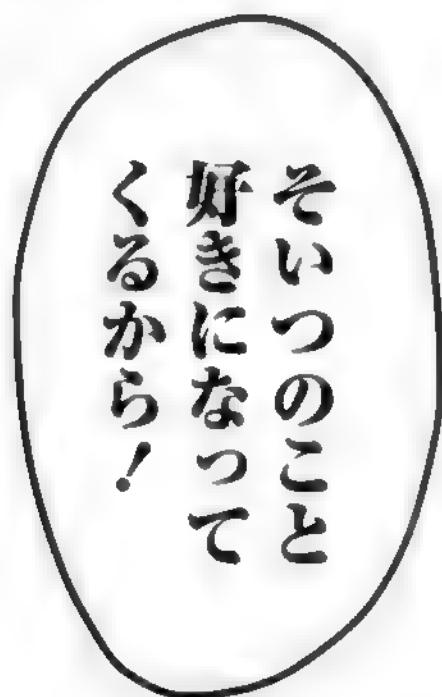 そいつのこと
好きになって
くるから！